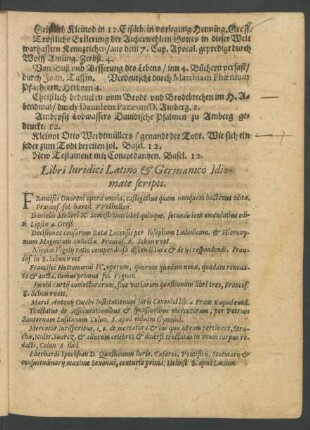 Geistlich Kleinod in 12. Eißleb. in vorlegung Henning. Gross.
Tröstliche Erklerung der Außerwehlten Gottes in dieser Welt
warhafften Kennzeichen/ aus dem 7. Cap. Apocal. gepredigt durch
Wolff Amling. Zerbst. 4.
Von Buß und Besserung des Lebens/ inn 4. Büchern verfast/
durch Joan. Taffin. Verdeutscht durch Matthiam
Pfarherrn, Herborn 8.
Christlich bedencken vom Brodt und Brodtbrechen im H. A-
bendmal/ durch Danielem D. Amberg. 8.
Ambrosij Lobwassers Daudische Psalmen zu Amberg. ge-
druckt. 12.
Kleinot Otto Werdtmüllers/ genandt der Todt. Wie sich ein
jeder zum Todt bereiten sol. Basel. 12.
New Testament mit Concordantzen. Basel. 12.
Libri Iuridici Latino & Germanico Idio-
mate scripti.
Francisci Duareni opera omnia, castigatius quam unquam hactenus edita,
Francof. fol. hæred. Wechelior.
Danielis Molleri IC. Semestrium libri quinque, secundò iam emendatius editi.
Lipsiæ 4. Grosß
Decisiones causarum Rotæ Lucensis per Iosephum Ludouicum, et Hierony-
mum Magonium collectæ. Francof. 8. Schonwett.
Nicolai Vigelij ratio compendiosa discendi iura & de iis respondendi. Fran-
cof. in 8. Schonvvett.
Francisci Hottomanni IC. operum, quorum quædam noua, quædam renoua-
ta & aucta, tomus primus fol. Vignon.
Iacobi curtij coniecturarum, siue variarum quæstionum libri tres, Francof.
8. Schonvvett.
Marci Antonij Cuchi Institutionum juris Canonici lib. 4. Franc. Kopodemst.
Tractatus de assecurationibus & sponsionibus mercatorum, per Petrum
Santernam Lusitanum Colon. 8. apud viduam Gymnici.
Mercatur Iurisperitus, i, e. de mercatura & iis que ad eam pertinent, Strac-
cha, Nider, Suarez, & aliorum celebres & diversi tractatus in unum corpus re-
dacti, Colon. 8. Ibid.
Eberhardi Speckhan D. Quæstionum Iuris. Cæsarei, Pontificii, Statutarij &
consuetudinarij maxime Saxonici, centuria prima, Helmst. 8. apud Lucium.